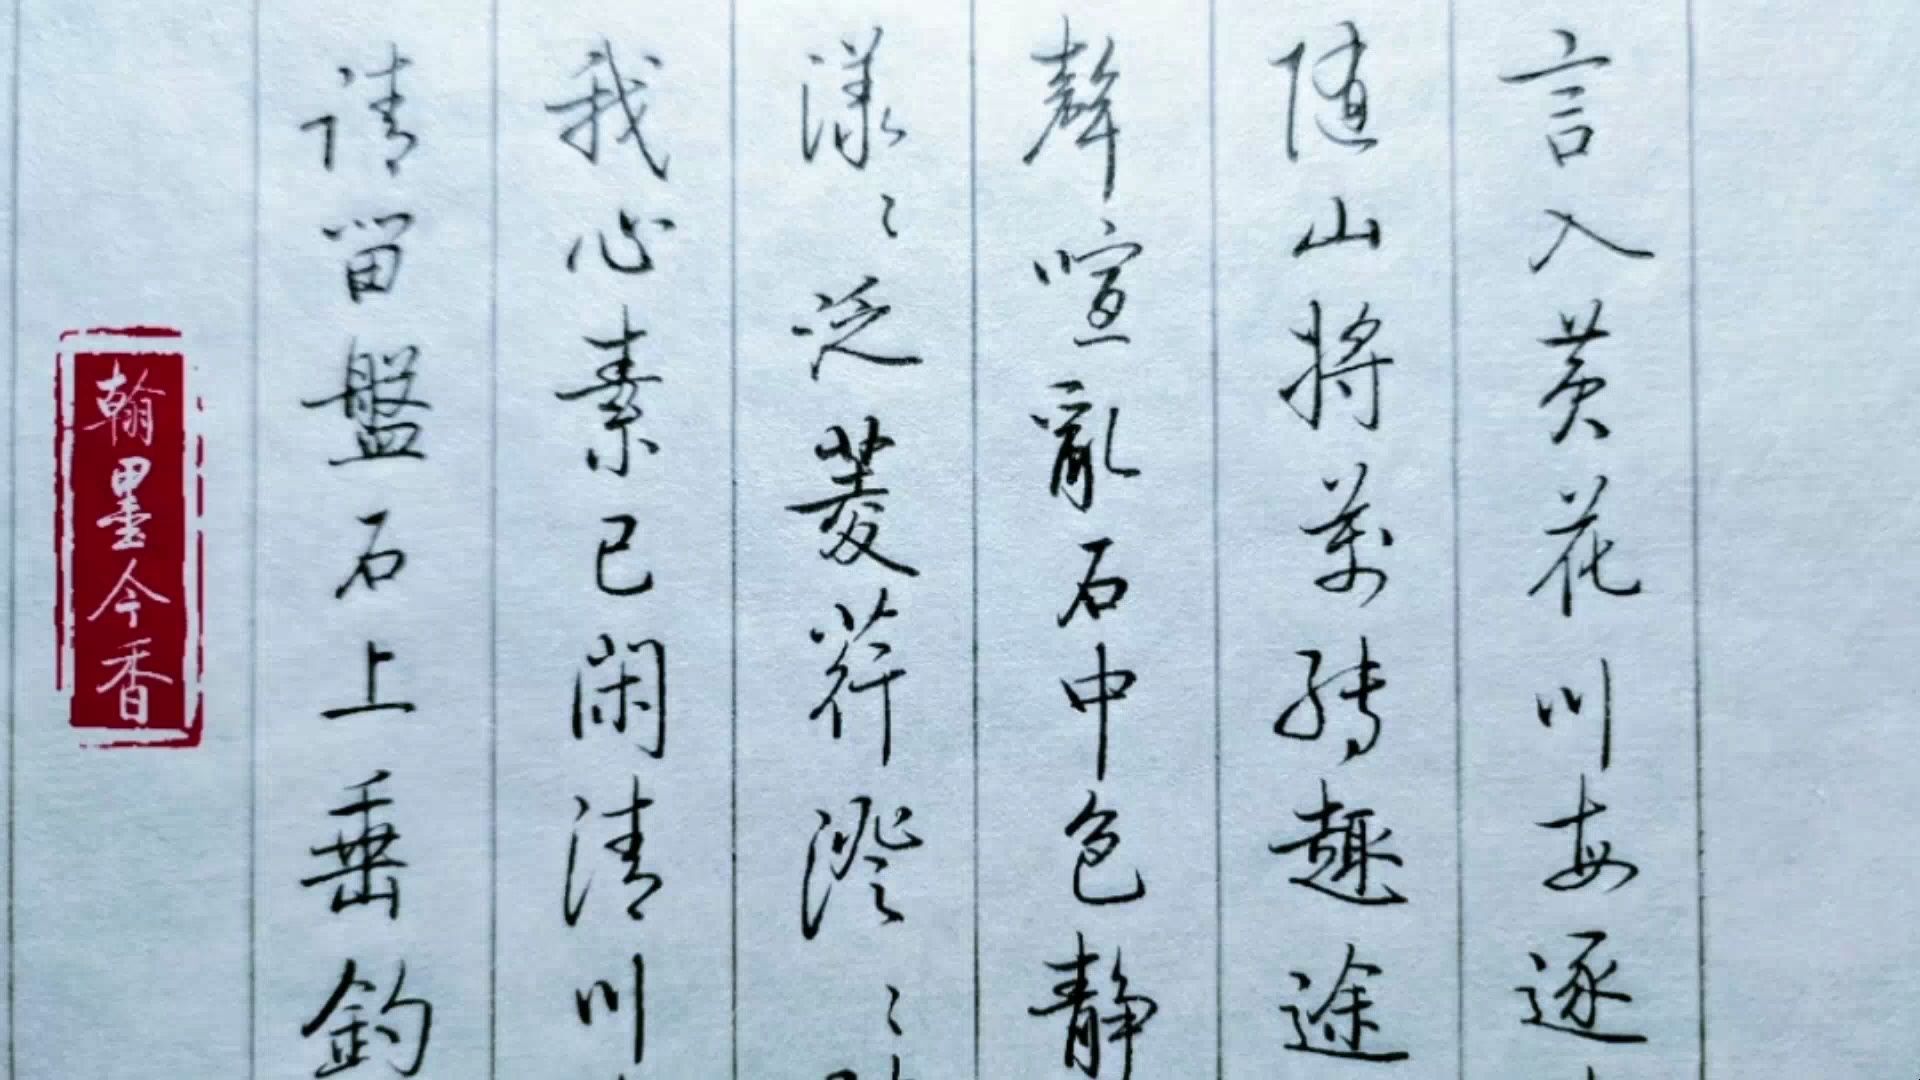 言入黄花川每逐
随山將萬轉趣途
聲喧亂石中色静
漾々泛菱荇澄々
我心素已闲清川
请留盤石上垂釣
翰墨今香